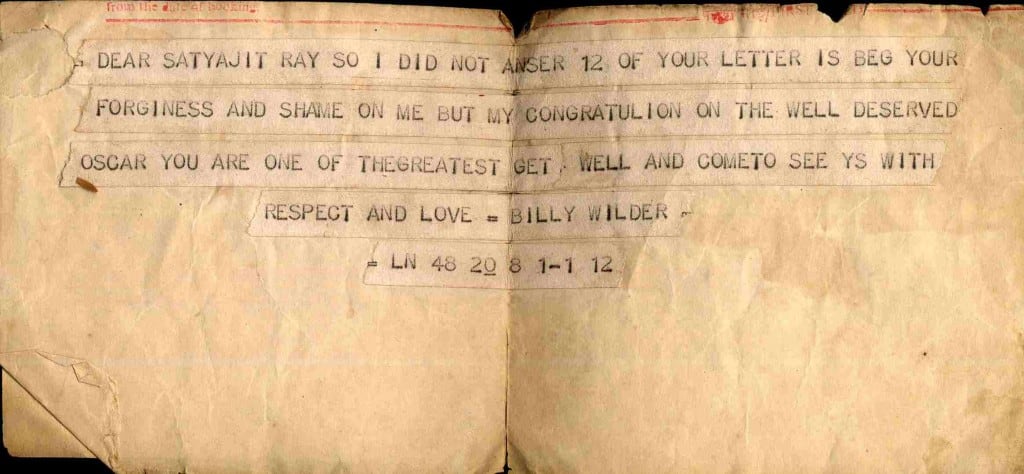 from the date of booking
= DEAR SATYAJIT RAY SO I DID NOT ANSER 12 OF YOUR LETTER IS BEG YOUR
FORGINESS AND SHAME ON ME BUT MY CONGRATULION ON THE WELL DESERVED
OSCAR YOU ARE ONE OF THEGREATEST GET . WELL AND COMETO SEE YS WITH
RESPECT AND LOVE = BILLY WILDER =
= LN 48 20 8 1-1 12